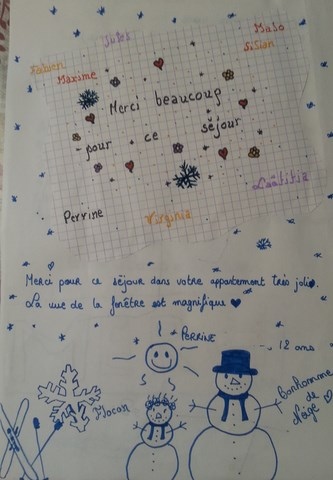 Jules
Malo
Fabien
Sislan
Maxime
Merci beaucoup
pour ce séjour
Laëtitia
Perrine
Virginie
Merci pour ce séjour dans votre appartement très jolie.
La vue de la fenêtre est magnifique
PERRINE
12 ans
Bonhomme
de
Neige
Flocon